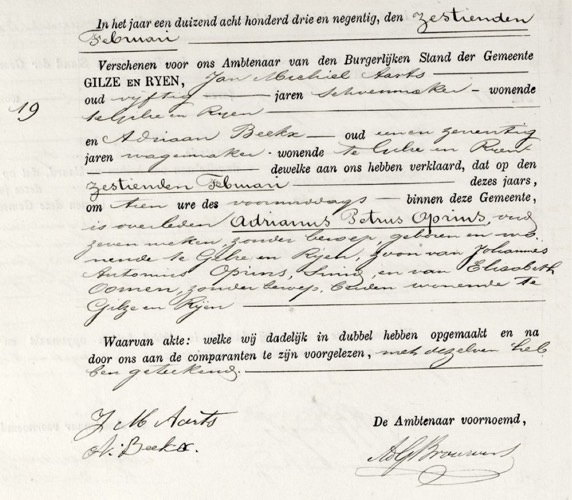 In het jaar een duizend acht honderd drie en negentig, den zestienden
Februari
Verschenen voor ons Ambtenaar van den Burgerlijken Stand der Gemeente
GILZE EN RYEN, Jan Mechiel Aarts
19
oud vyftig jaren schoenmaker wonende
te Gilze en Ryen
en Adriaan Beekx oud een en zeventig
jaren wagemaker wonende te Gilze en Ryen
dewelke aan ons hebben verklaard, dat op den
zestienden Februari dezes jaars,
om tien ure des voormiddags binnen deze Gemeente,
is overleden Adrianus Petrus Oprins, oud
zeven weken, zonder beroep, geboren en wo-
nende te Gilze en Ryen, zoon van Johannes
Antonius Oprins, en van Elisabeth
Oomen, zonder beroep, beiden wonende te
Gilze en Ryen
Waarvan akte: welke wij dadelijk in dubbel hebben opgemaakt en na
door ons aan de comparanten te zijn voorgelezen, met dezelven heb
ben geteekend.
J M Aarts
De Ambtenaar voornoemd,
A. Beekx.
Brouwers